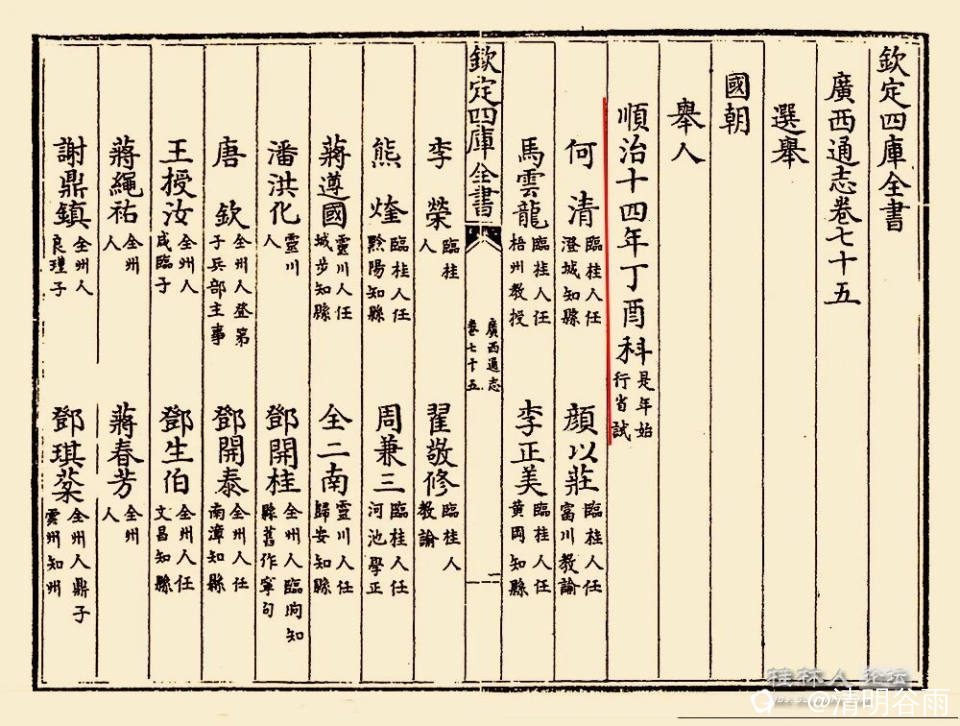 欽定四庫全書
廣西通志卷七十五
選舉
國朝
舉人
順治十四年丁酉科 是年始行省試
何清 臨桂人任澄城知縣 顏以莊 臨桂人任富川教諭
馬雲龍 臨桂人任梧州教授 李正美 臨桂人任黃岡知縣
欽定四庫全書 廣西通志卷七十五 一
李榮 臨桂人 翟敬修 臨桂人教諭
熊煃 臨桂人任黔陽知縣 周兼三 臨桂人任河池學正
蔣遵國 靈川人任城步知縣 全二南 靈川人任歸安知縣
潘洪化 靈川人 鄧開桂 全州人臨朐知縣舊作寧句
唐欽 全州人登第子兵部主事 鄧開泰 全州人任南漳知縣
王授汝 全州人咸臨子 鄧生伯 全州人任文昌知縣
蔣繩祐 全州人 蔣春芳 全州人
謝鼎鎮 全州人良子 鄧琪棻 全州人鼎子雲州知州
桂林人论坛
@清明谷雨